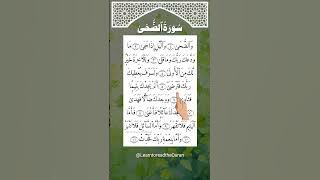 سُورَةُ ٱلضُّحَىٰ
وَٱلضُّحَىٰ ۝١ وَٱلَّيۡلِ إِذَا سَجَىٰ ۝٢ مَا
وَدَّعَكَ رَبُّكَ وَمَا قَلَىٰ ۝٣ وَلَلۡأٓخِرَةُ خَيۡرٞ
لَّكَ مِنَ ٱلۡأُولَىٰ ۝٤ وَلَسَوۡفَ يُعۡطِيكَ
رَبُّكَ فَتَرۡضَىٰٓ ۝٥ أَلَمۡ يَجِدۡكَ يَتِيمٗا
فَـَٔاوَىٰ ۝٦ وَوَجَدَكَ ضَآلّٗا فَهَدَىٰ ۝٧
وَوَجَدَكَ عَآئِلٗا فَأَغۡنَىٰ ۝٨ فَأَمَّا
ٱلۡيَتِيمَ فَلَا تَقۡهَرۡ ۝٩ وَأَمَّا ٱلسَّآئِلَ فَلَا تَنۡهَرۡ
۝١٠ وَأَمَّا بِنِعۡمَةِ رَبِّكَ فَحَدِّثۡ ۝١١
@LearntoreadtheQuran